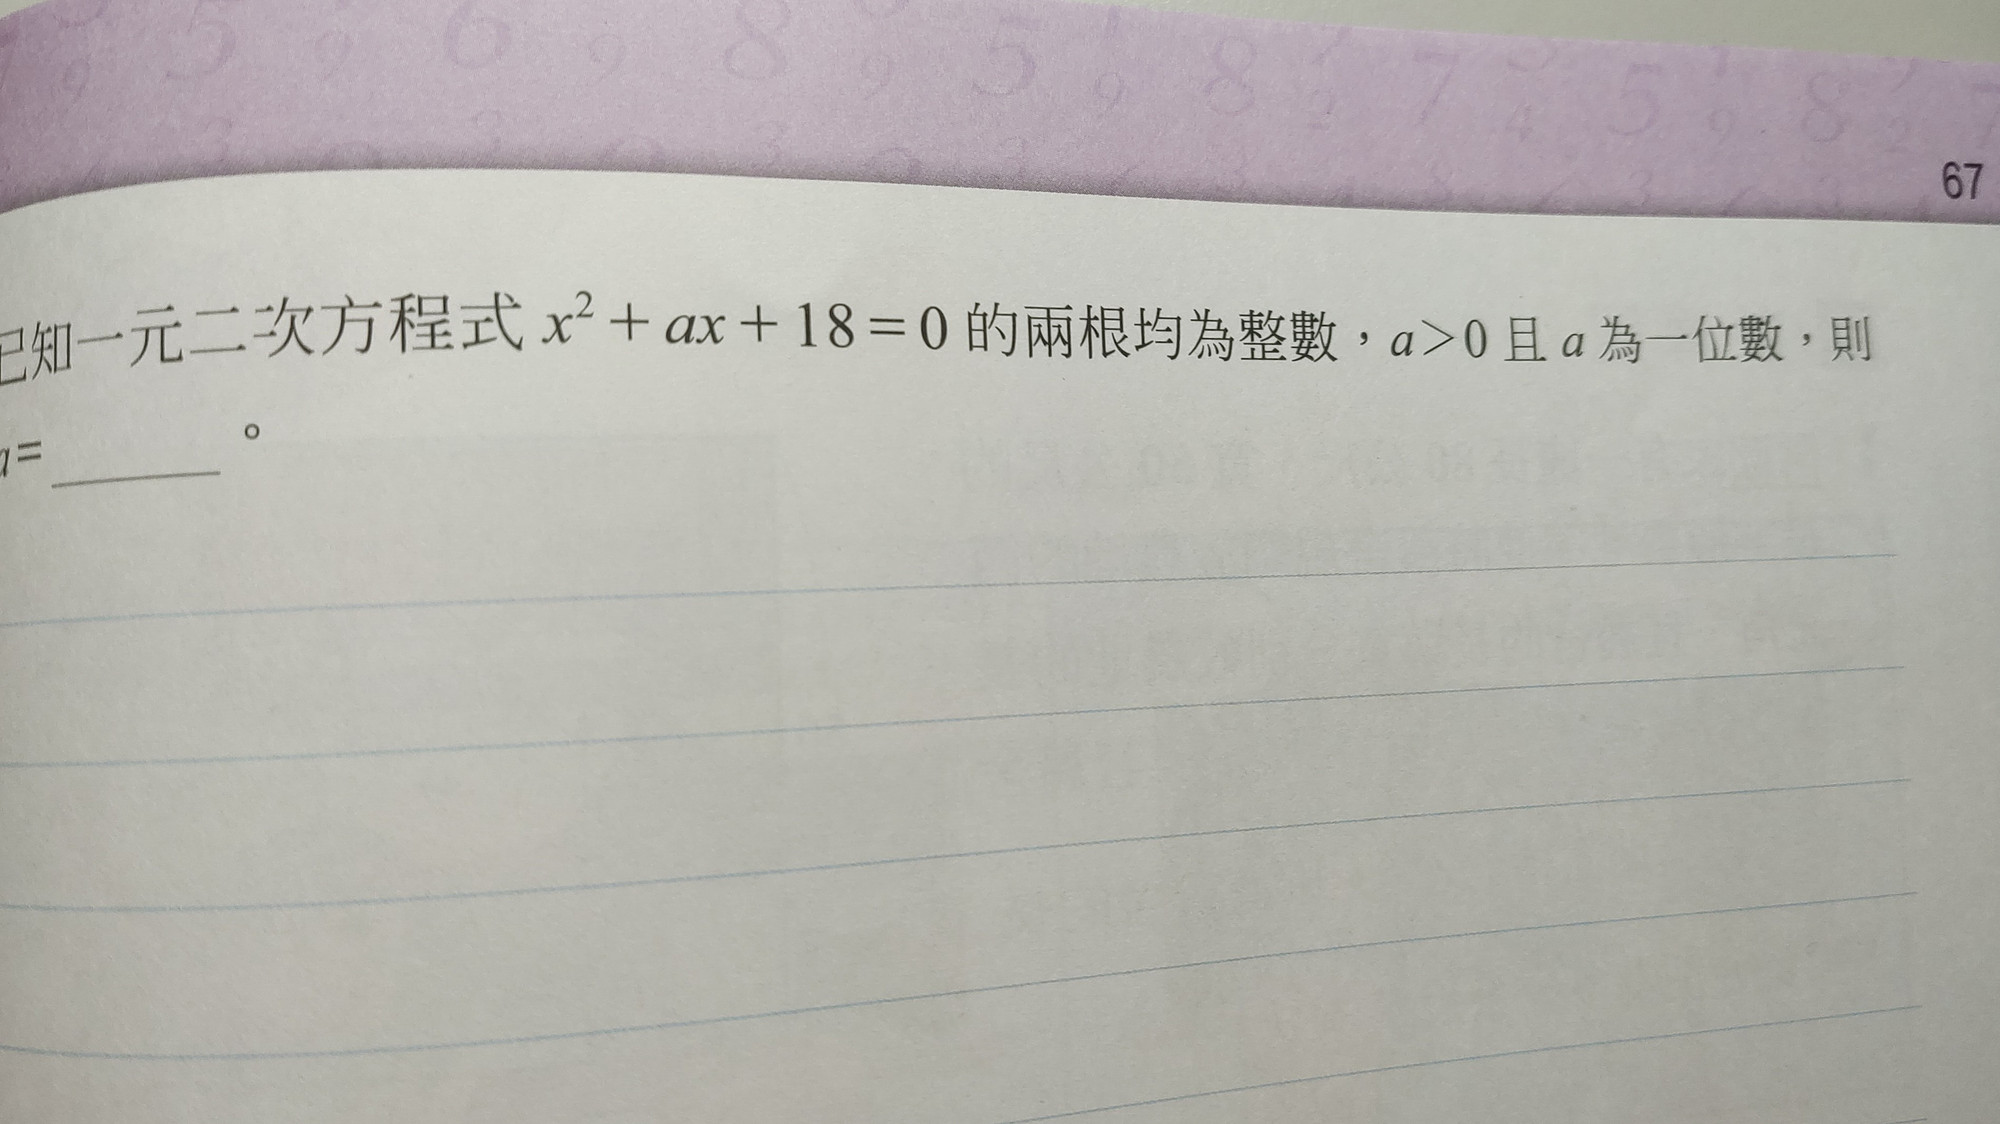 67
已知一元二次方程式 x² + ax + 18 = 0 的兩根均為整數，a＞0 且 a 為一位數，則
a= ______ 。